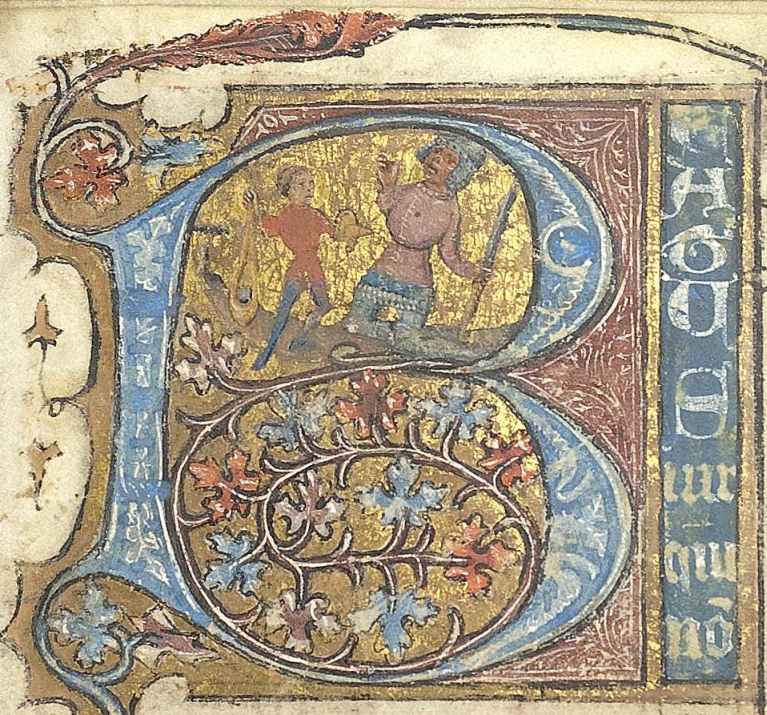 B
E
A
T
U
S
uir
qui
nō